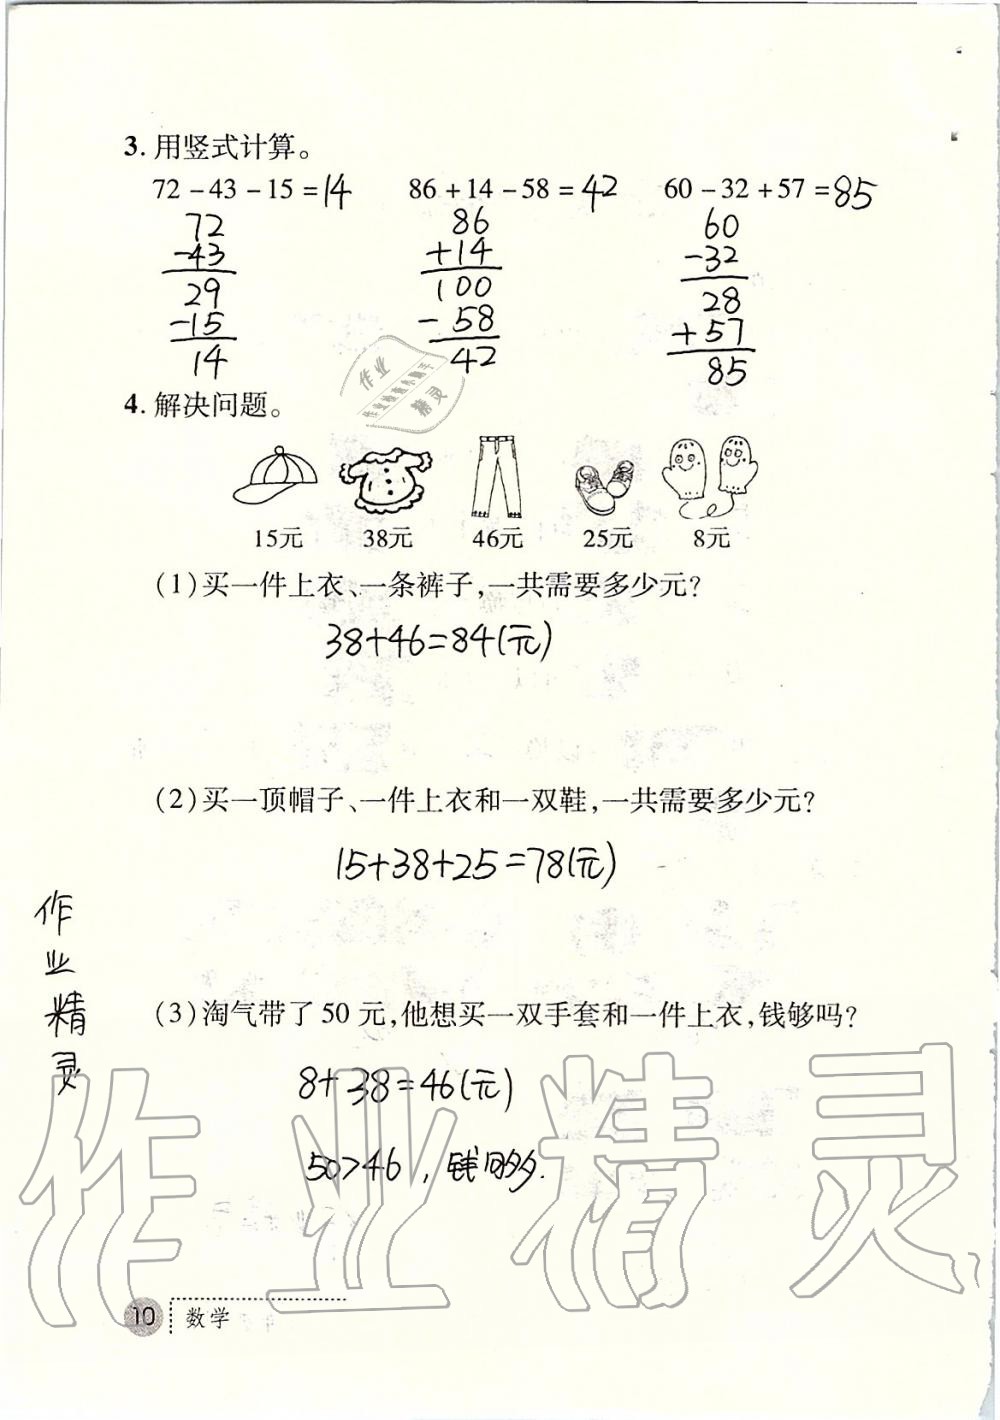 3. 用竖式计算。
72-43-15=14 86+14-58=42 60-32+57=85
72 86 60
-43 +14 -32
29 100 28
-15 -58 +57
14 42 85
4. 解决问题。
15元 38元 46元 25元 8元
(1)买一件上衣、一条裤子,一共需要多少元?
38+46=84(元)
(2)买一顶帽子、一件上衣和一双鞋,一共需要多少元?
15+38+25=78(元)
(3)淘气带了50元,他想买一双手套和一件上衣,钱够吗?
8+38=46(元)
50>46,钱够.
作业精灵
作业精灵
10 数学